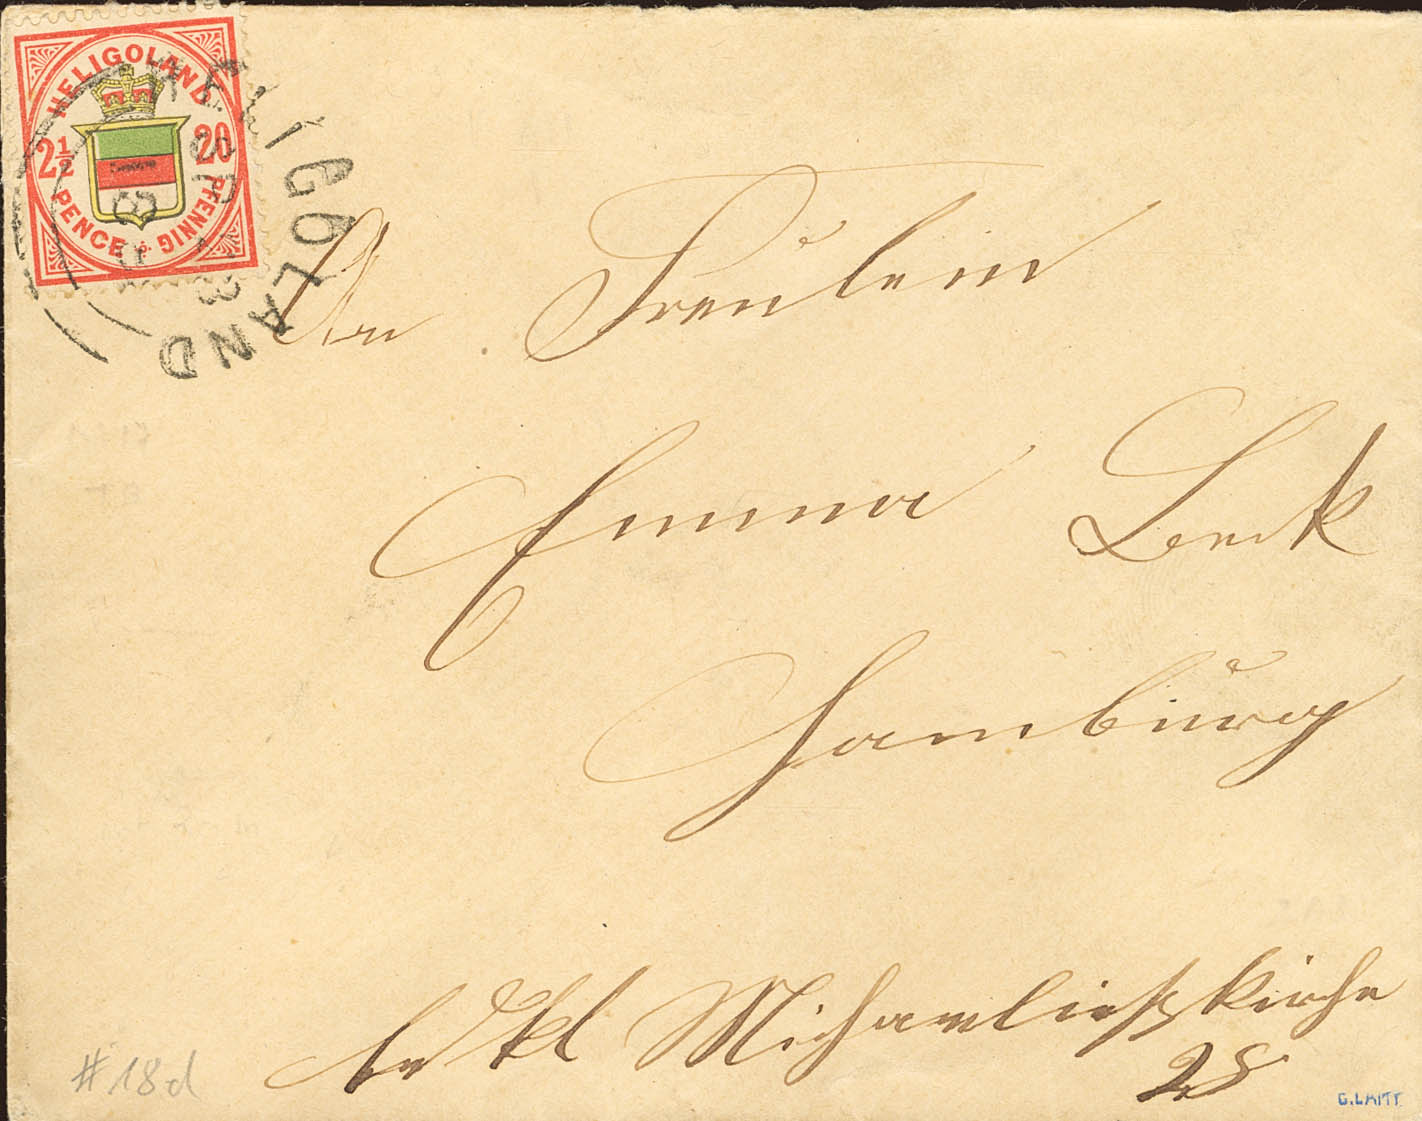 HELIGOLAND
2½ 20
PENCE & PFENNIG
HELIGOLAND
SEP 13
An Fräulein
Emma Lenk
Hamburg
kl Michaeliskirche
28
#18d